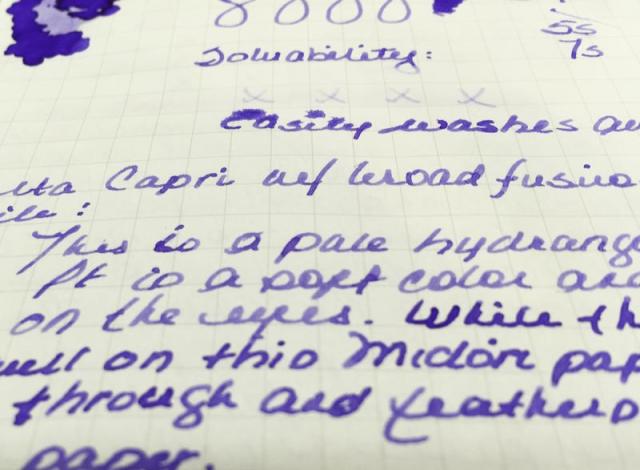 8000
5s
7s
Soluability:
x x x x
Easily washes aw
lta Capri w/ broad fusion
ile:
This is a pale hydrange
It is a soft color and
on the eyes. While th
well on this Midori pap
through and feathers
paper.